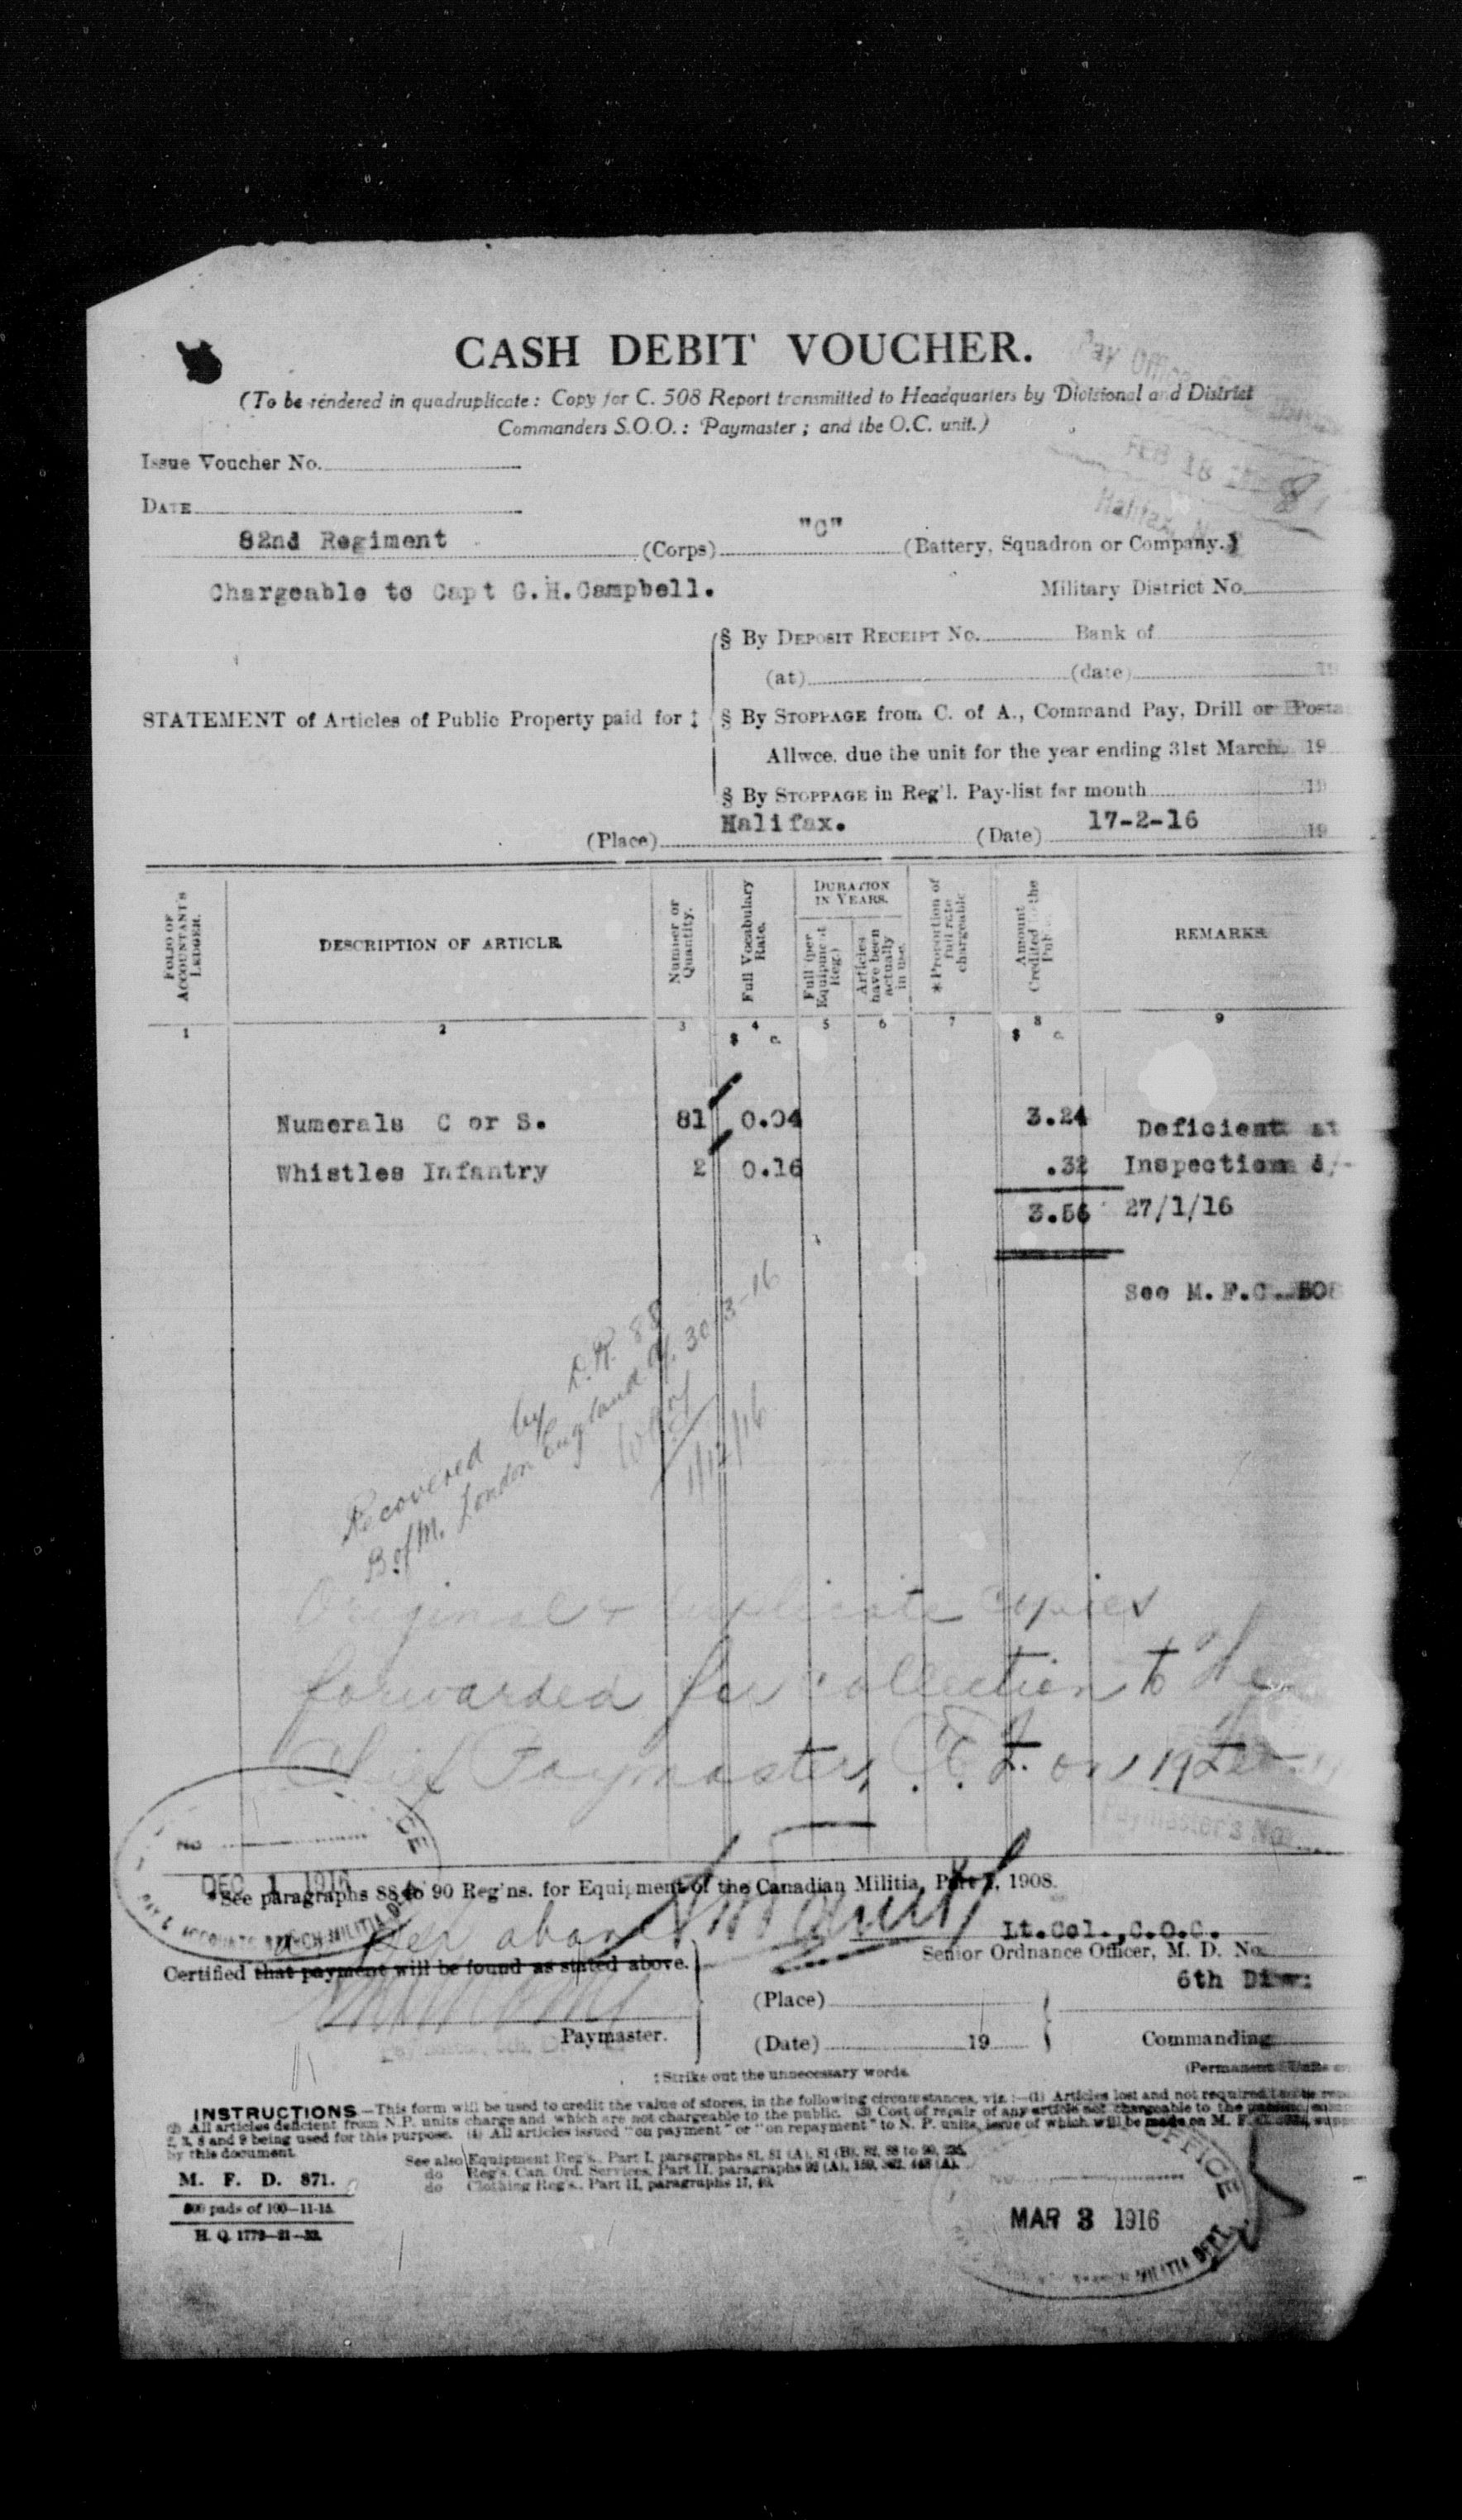 CASH DEBIT VOUCHER.
(To be rendered in quadruplicate: Copy for C. 508 Report transmitted to Headquarters by Divisional and District
Commanders S.O.O.: Paymaster; and the O.C. unit.)
Pay Office
FEB 18
Halifax, N.
8
Issue Voucher No.
DATE
82nd Regiment (Corps) "C" (Battery, Squadron or Company.)
Chargeable to Capt G.H.Campbell. Military District No.
§ By DEPOSIT RECEIPT No. Bank of
(at) (date) 19
STATEMENT of Articles of Public Property paid for ‡ § By STOPPAGE from C. of A., Command Pay, Drill or
Allwce. due the unit for the year ending 31st March 19
§ By STOPPAGE in Reg'l. Pay-list for month 19
(Place) Halifax. (Date) 17-2-16 19
FOLIO OF ACCOUNTANT'S LEDGER. DESCRIPTION OF ARTICLE Number or Quantity. Full Vocabulary Rate. DURATION IN YEARS. Full (per Equipment Reg.) Articles have been actually in use. *Proportion of full rate chargeable Amount Credited to the REMARKS.
1 2 3 4 5 6 7 8 9
$ c. $ c.
Numerals C or S. 81 0.04 3.24 Deficient at
Whistles Infantry 2 0.16 .32 Inspection d/-
3.56 27/1/16
See M.F.C. 508
Recovered by D.R. 88
B of M. London England of 30-3-16
1/12/16
Original & duplicate copies
forwarded for collection to the
Chief Paymaster, C.E.F. on 19
Paymaster's No.
No
DEC 1 1916
PAY & ACCOUNTS BRANCH MILITIA
*See paragraphs 88 to 90 Reg'ns. for Equipment of the Canadian Militia, Part 1, 1908.
per above
Lt.Col.,C.O.C.
Senior Ordnance Officer, M. D. No.
Certified that payment will be found as stated above.
6th Div:
(Place)
Paymaster.
(Date) 19 Commanding
(Permanent Units
‡ Strike out the unnecessary words.
INSTRUCTIONS—This form will be used to credit the value of stores, in the following circumstances, viz:—(1) Articles lost and not required to be
(2) All articles deficient from N.P. units charge and which are not chargeable to the public. (3) Cost of repair of any article not chargeable to the
2, 3, 8 and 9 being used for this purpose. (4) All articles issued "on payment" or "on repayment" to N. P. units, issue of which will be made on M. F.
by this document.
See also Equipment Reg's., Part I, paragraphs 81, 81 (A), 81 (B), 82, 88 to 90,
do Reg's. Can. Ord. Services, Part II, paragraphs
do Clothing Reg's., Part II, paragraphs 17,
M. F. D. 871.
pads of 100—11-15.
H. Q. 1772—21—
OFFICE
MAR 3 1916
BRANCH MILITIA DEPT.